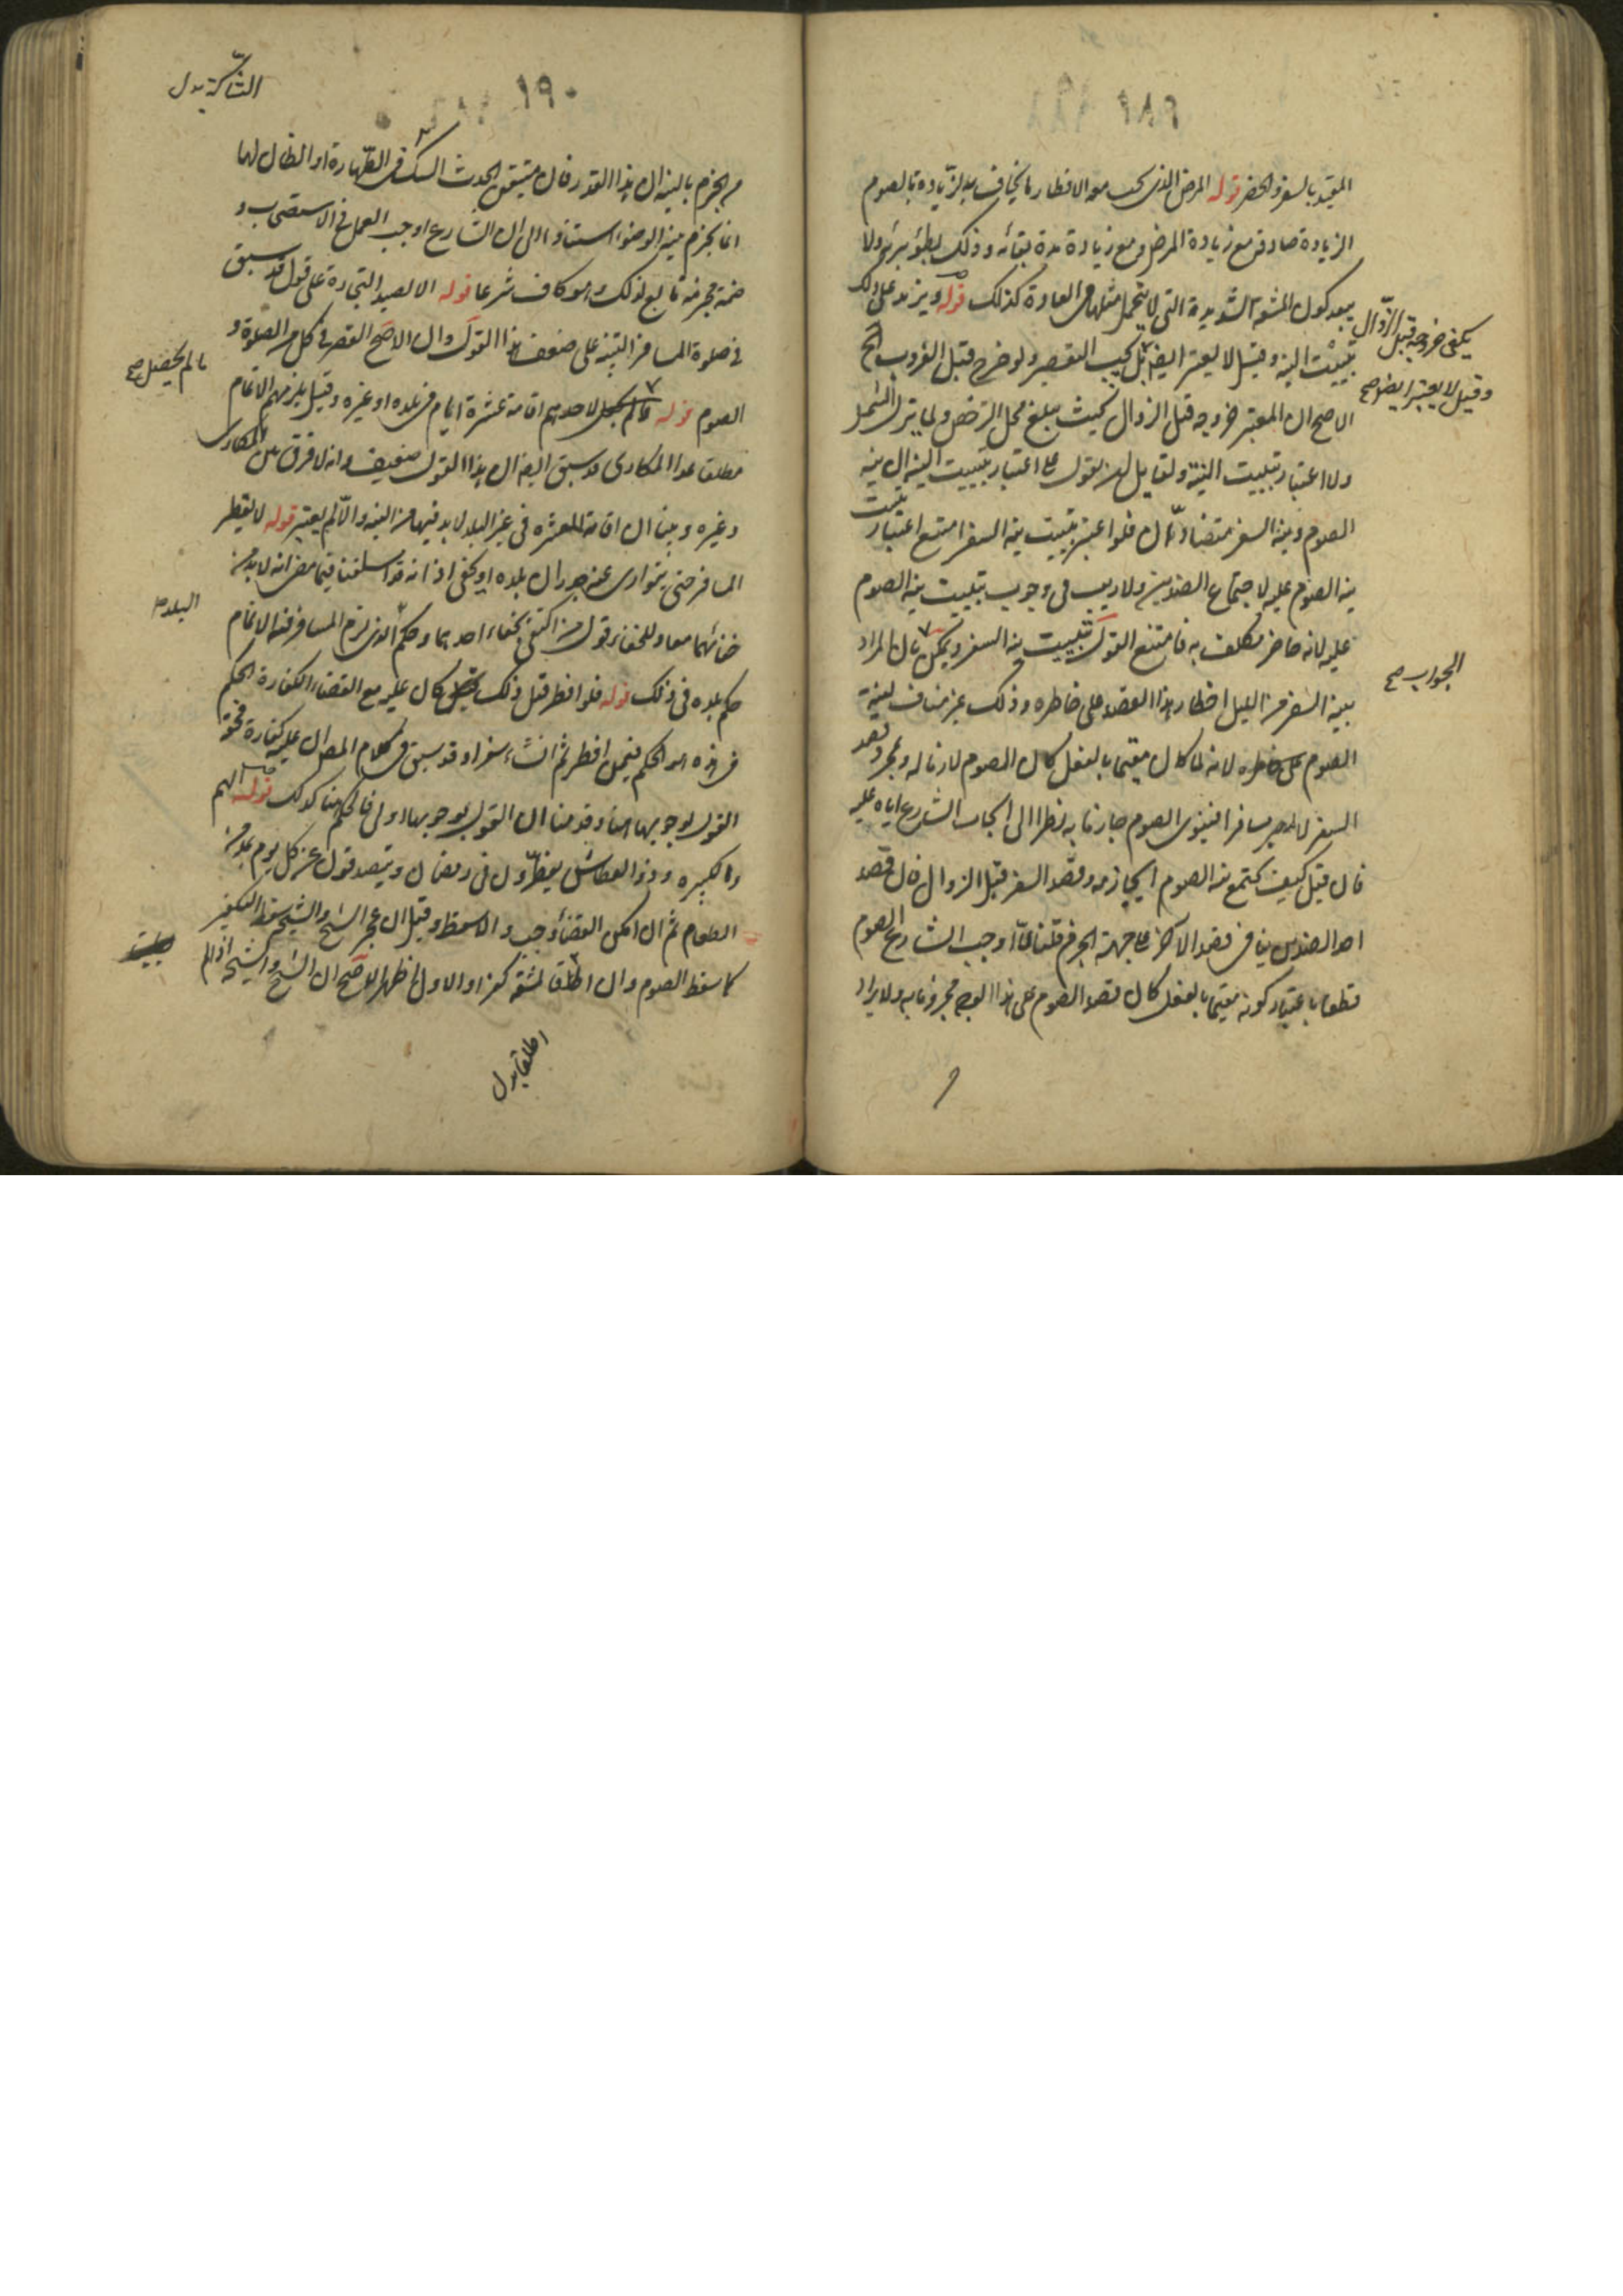 المقيد بالسفر والحضر قوله المرض الذي يجب معه الافطار ما يخاف به الزيادة بالصوم
الزيادة صادق مع زيادة المرض ومع زيادة مدة بقائه وذلك بطؤ برئه ولا
يبعد كون المشقة الشديدة التي لا يتحمل مثلها في العادة كذلك قوله ويزيد على ذلك
تبييت النية وقيل لا يعتبر ايضا بل يجب التقصير ولو خرج قبل الغروب الخ
يكفي خروجه قبل الزوال
وقيل لا يعتبر ايضا صح
الاصح ان المعتبر خروجه قبل الزوال بحيث يبلغ محل الترخص ولما يزل الشمس
ولا اعتبار بتبييت النية ولقايل ان يقول على اعتبار تبييت النية ان نية
الصوم ونية السفر متضادتان فلو اعتبر تبييت نية السفر امتنع اعتبار تبييت
نية الصوم عليه لاجتماع الضدين ولا ريب في وجوب تبييت نية الصوم
عليه لانه حاضر مكلف به فامتنع القول بتبييت نية السفر ويمكن بان المراد
الجواب صح
بنية السفر من الليل اخطار هذا القصد على خاطره وذلك غير مناف لنية
الصوم على خاطره لانه لما كان مقيما بالفعل كان الصوم لازما له وبمجرد قصد
السفر لا يصير مسافرا فينوي الصوم جازما به نظرا الى ايجاب الشارع اياه عليه
فان قيل كيف يجتمع نية الصوم اي جازمه وقصد السفر قبل الزوال فان قصد
احد الضدين ينافي قصد الاخر على جهة الجزم قلنا لما اوجب الشارع الصوم
قطعا باعتبار كونه مقيما بالفعل كان قصد الصوم على هذا الوجه مجزوما به ولا يراد
١٩٠
الشك بدل
من الجزم بالنية ان هذا القدر فان متيقن الحدث الشاك في الطهارة او الظان لها
انما يجزم بنية الوضوء استنادا الى ان الشارع اوجب العمل في الاستصحاب و
ضمة جزمه تابع لذلك وهو كاف شرعا قوله الا لصيد التجارة على قول قد سبق
في صلوة المسافر التنبيه على ضعف هذا القول وان الاصح القصر في كل من الصلوة و
الصوم قوله ما لم يحصل لاحدهم اقامة عشرة ايام في بلده او غيره وقيل يلزمهم الاتمام
ما لم يحصل صح
مطلقا عدا المكاري قد سبق ايضا ان هذا القول ضعيف وانه لا فرق بين المكاري
وغيره وبينا ان اقامة العشرة في غير البلد لا بد فيها من النية والا لم يعتبر قوله لا يفطر
المسافر حتى يتوارى عنه جدران بلده او يخفى اذانه قد اسلفنا فيما مضى انه لا بد من
البلد
خفائهما معا وللمحقق قول من اكتفى بخفاء احدهما وحكم الذي لزم المسافر فيه الاتمام
حكم بلده في ذلك قوله فلو افطر قبل ذلك كان عليه مع القضاء الكفارة الحكم
في هذه هو الحكم فيمن افطر ثم انشاء سفرا وقد سبق في كلام المص ان عليه كفارة فحق
القول بوجوبها هنا وقد بينا ان القول بوجوبها اولى فالحكم هنا كذلك قوله الهم
والكبيرة وذو العطاش يفطرون في رمضان ويتصدقون عن كل يوم بمد من
الطعام ثم ان امكن القضاء وجب والا سقط وقيل ان عجز الشيخ والشيخة سقط التكفير
كما سقط الصوم وان اطاقا بمشقة كفرا والاول اظهر الاصح ان الشيخ والشيخة اذا لم
اطلقا بدل